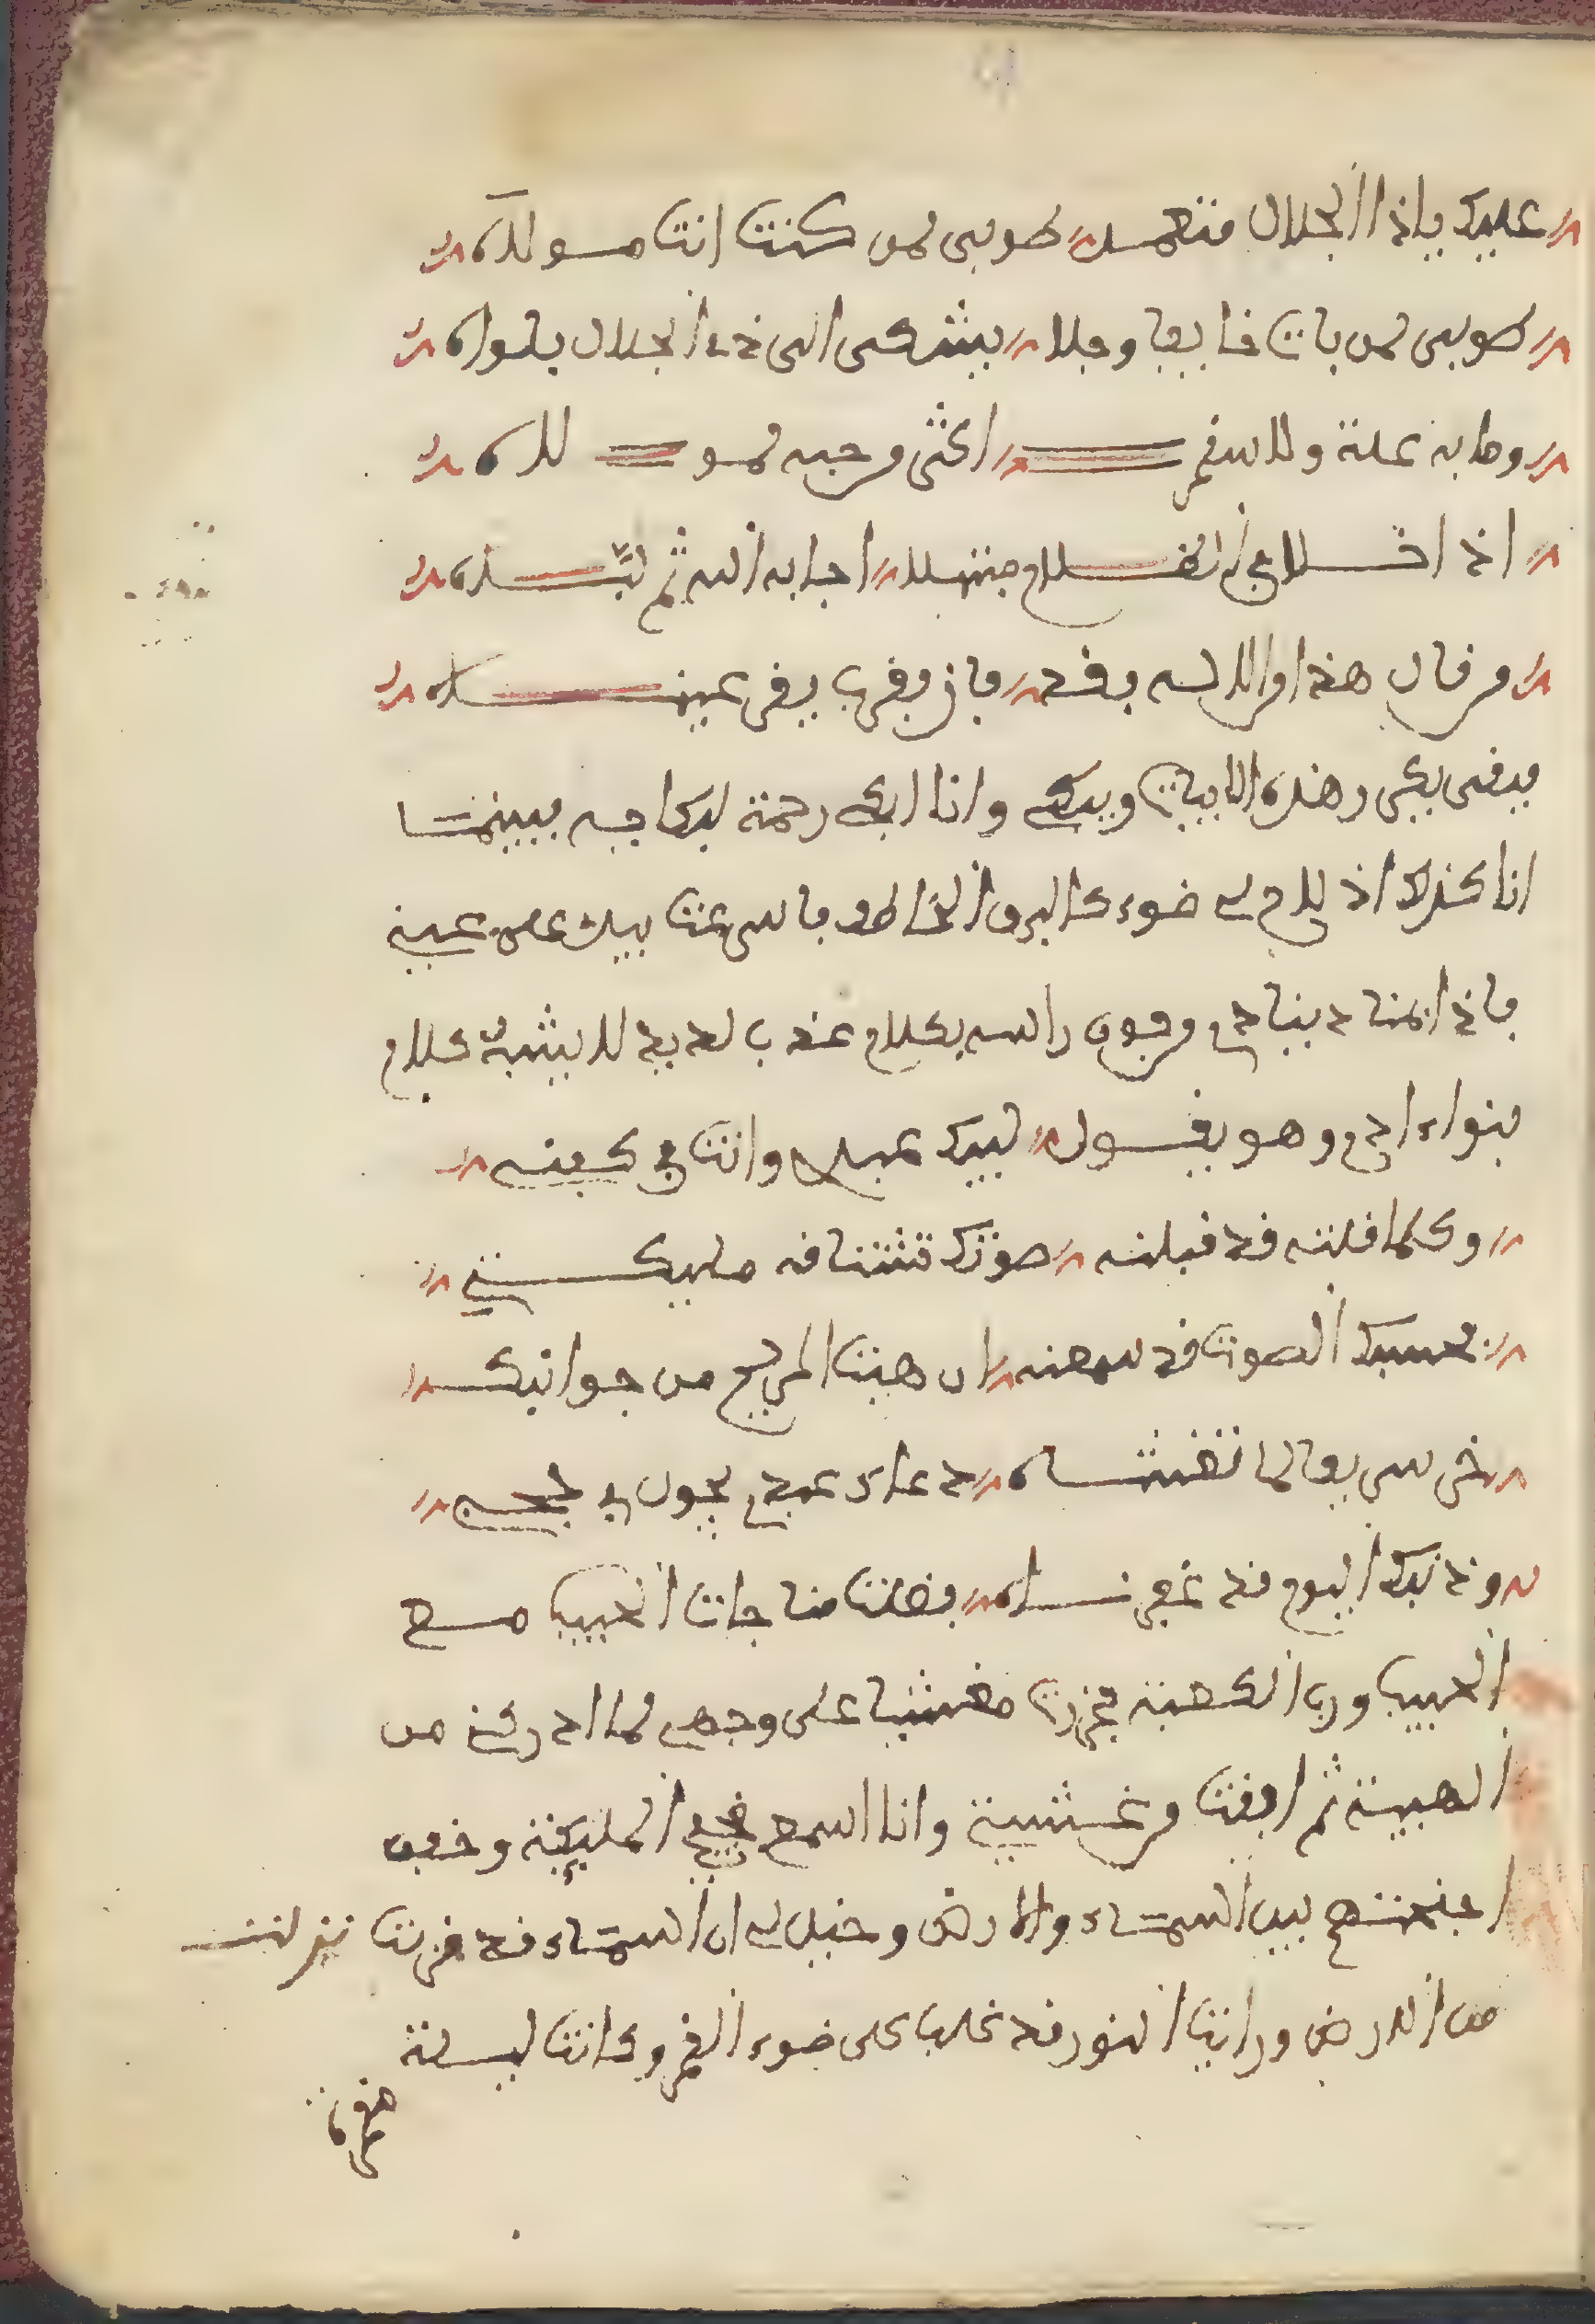 عليك ياذا الجلال معتمد طوبى لمن كنت انت مولاه
طوبى لمن بات خايفا وجلا يشكى الى ذى الجلال بلواه
وما به علة ولا سقم اكثر من حبه لمولاه
اذا خلا في الظلام مبتهلا اجابه الله ثم لباه
من قال هذا من الله بقد فاز بقرب يقر عيناه
فبقى يكرر هذه الابيات ويبكى وانا ابكى رحمة لبكايه فبينما
انا كذلك اذ لاح لي ضوء كالبرق الخاطف فاسرعت بيدى على عيني
فاذا بمناد ينادي من فوق راسه بكلام عذب لذيذ لا يشبه كلام
بنواءادم وهو يقول لبيك عبدي وانت في كنفي
وكلما قلته قد قبلته صوتك تشتاقه مليكتي
فحسبك الصوت قد سمعنه ان هبت الريح من جوانبه
خر سريعا لما تغشاه دعاء عبدي يجول في حجبي
وذنبك اليوم قد غفرناه فقلت مناجات الحبيب مع
الحبيب ورب الكعبة فخررت مغشيا على وجهي لما ادركني من
الهيبة ثم افقت من غشيتي وانا اسمع ضجيج المليكة وخفق
اجنحتهم بين السماء والارض وخيل لي ان السماء قد قربت
من الارض ورايت النور قد غلب على ضوء القمر وكانت ليلة
مقمرة